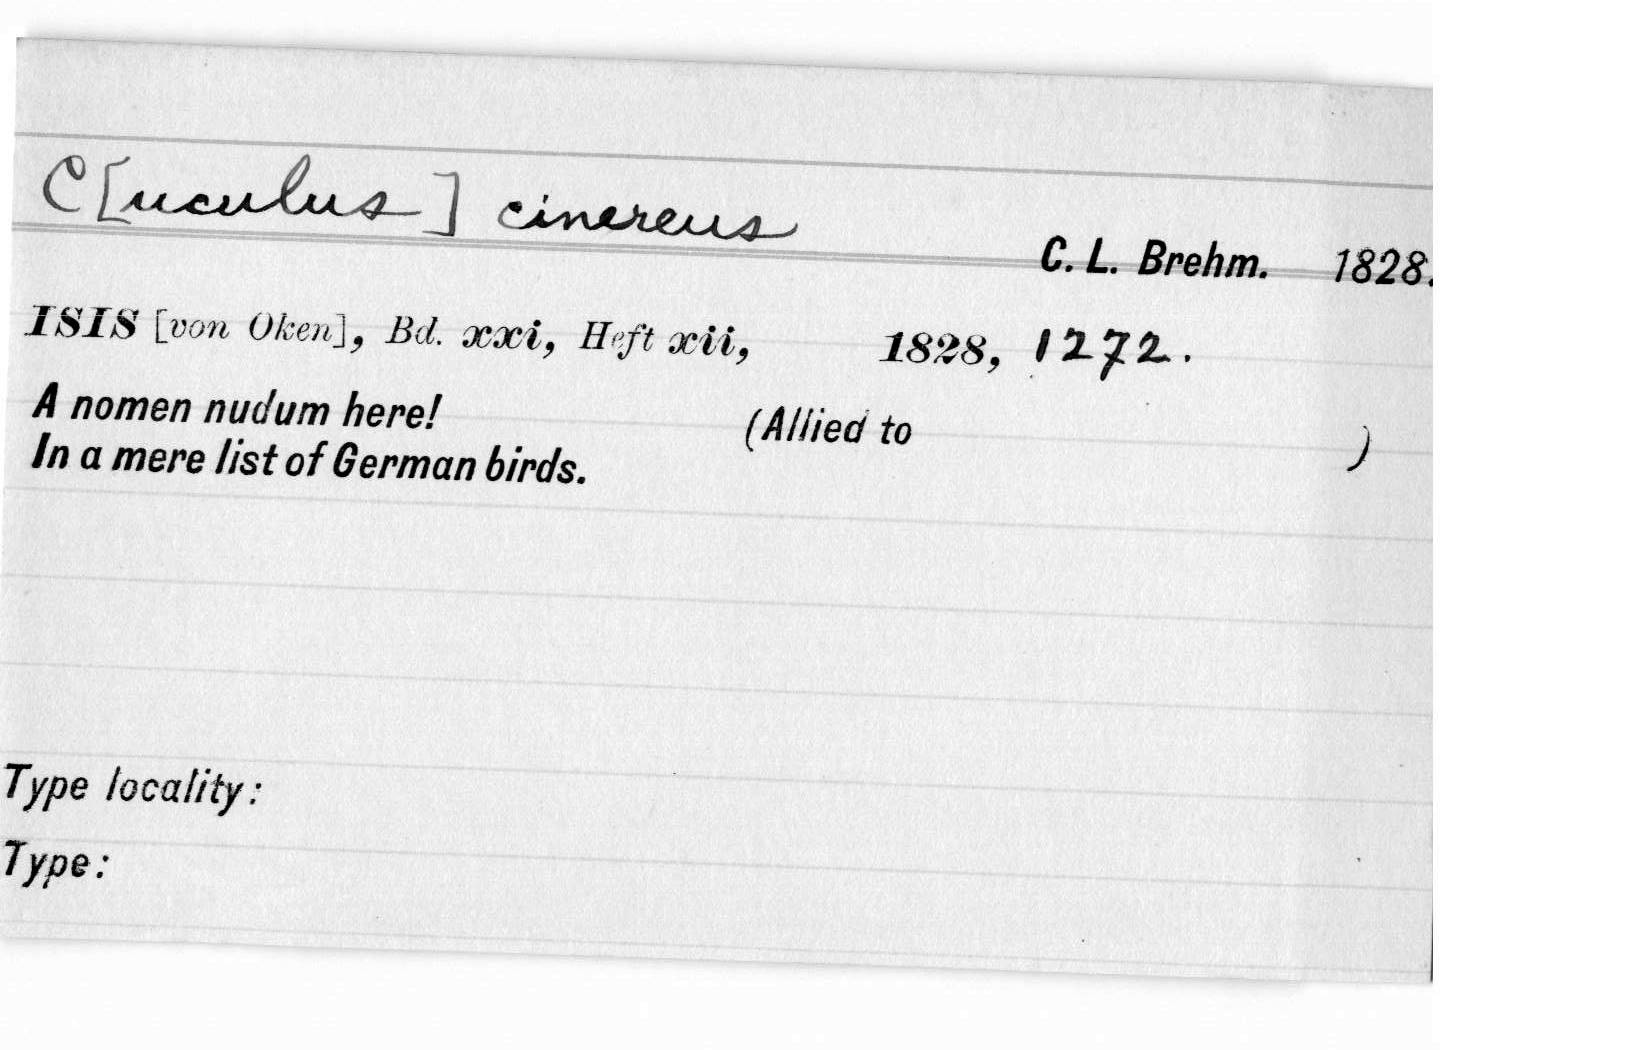 C[uculus] cinereus
C. L. Brehm. 1828.
ISIS [von Oken], Bd. xxi, Heft xii, 1828, 1272.
A nomen nudum here! (Allied to )
In a mere list of German birds.
Type locality:
Type: